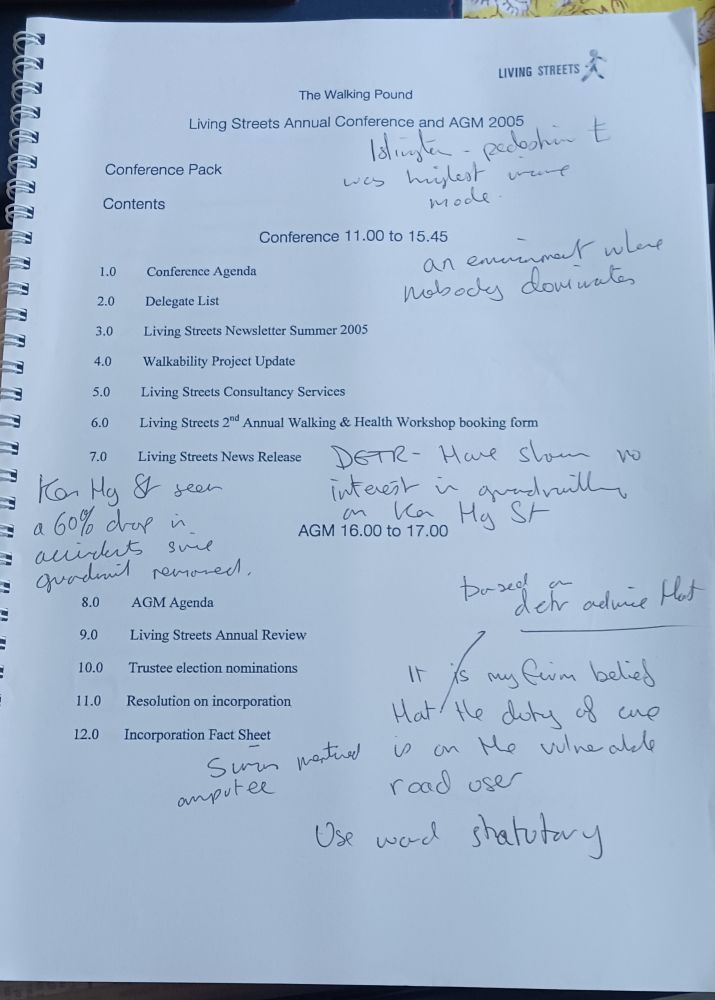 LIVING STREETS
The Walking Pound
Living Streets Annual Conference and AGM 2005
Islington - pedestrian
was highest
mode.
Conference Pack
Contents
Conference 11.00 to 15.45
an environment where
nobody dominates
1.0 Conference Agenda
2.0 Delegate List
3.0 Living Streets Newsletter Summer 2005
4.0 Walkability Project Update
5.0 Living Streets Consultancy Services
6.0 Living Streets 2nd Annual Walking & Health Workshop booking form
7.0 Living Streets News Release
DETR - Have shown no
interest in
on Ken Hg St
Ken Hg St seen
a 60% drop in
accidents since
removed.
AGM 16.00 to 17.00
8.0 AGM Agenda
9.0 Living Streets Annual Review
10.0 Trustee election nominations
11.0 Resolution on incorporation
12.0 Incorporation Fact Sheet
based on
detr advice that
It is my firm belief
that the duty of care
is on the vulnerable
road user
mentioned
amputee
Use word statutory